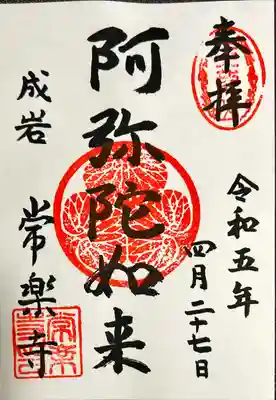 奉拝
令和五年
四月二十七日
阿弥陀如来
成岩
常楽寺